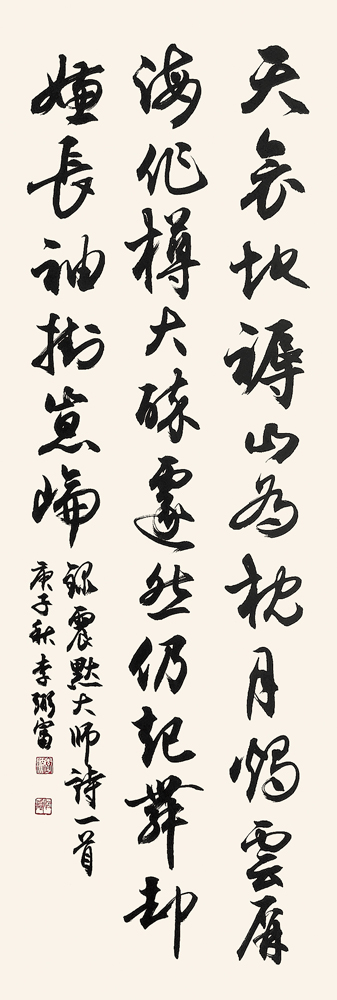 天衾地褥山為枕月燭雲屏
海作樽大醉遽然仍起舞却
嫌長袖掛崑崙
錄震默大師詩一首
庚子秋 李